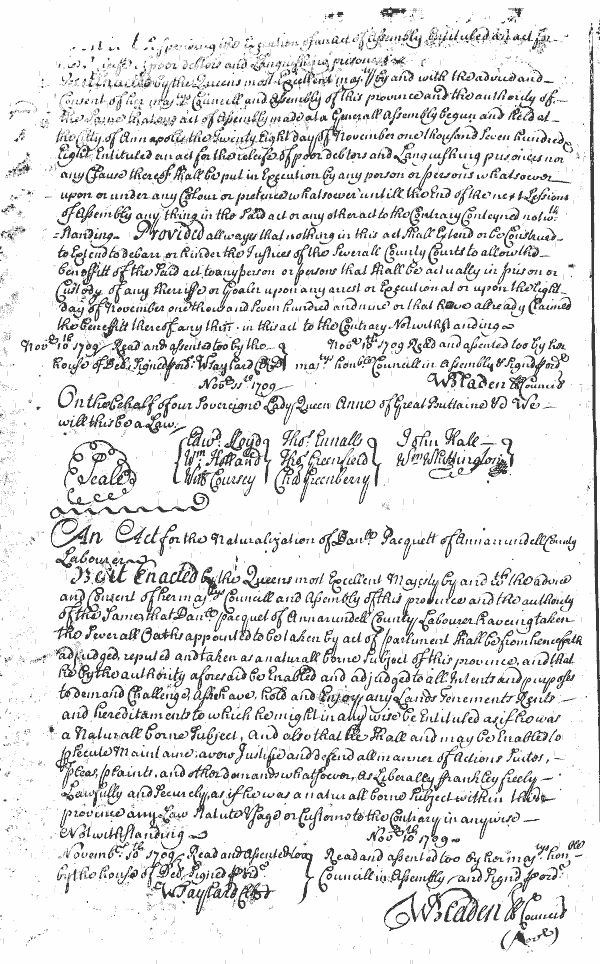 Suspending the Execution of an act of Assembly Entituled an act for
releife of poor debtors and Languishing prisoners
Be it Enacted by the Queens most Excellent maj.ty by and with the advice and
Consent of her maj.tys Councill and Assembly of this province and the authority of
the Same that an act of Assembly made at a Generall Assembly begun and held at
the City of Annapolis the Twenty Eight day of November one thousand Seven hundred
Eight Entituled an act for the releife of poor debtors and Languishing prisoners nor
any Clause thereof shall be put in Execution by any person or persons whatsoever
upon or under any Colour or pretence whatsoever untill the End of the next Sessions
of Assembly any thing in the Said act or any other act to the Contrary Conteyned notw.th
standing Provided allways that nothing in this act shall Extend or be Construed
to Extend to debarr or hinder the Justices of the Severall County Courts to allow the
benefitt of the Said act to any person or persons that shall be actually in prison or
Custody of any Sheriffe or Goaler upon any arrest or Execution at or upon the Eight
day of November one thousand Seven hundred and nine or that have allready Claimed
the benefitt thereof any thing in this act to the Contrary Notwithstanding
Nov.r 10.th 1709 Read and assented too by the
house of Del. Signed p ord.r W Taylard Cl
Nov.r 10.th 1709 Read and assented too by her
maj.tys hon.ble Councill in Assembly & Signd p ord.r
W Bladen Cl Council
Nov.r 11.th 1709
On the behalf of our Sovereigne Lady Queen Anne of Great Brittaine &c We
will this be a Law
Seale
Edw.d Lloyd
W.m Holland
W.m Coursey
Tho.s Ennalls
Tho.s Greenfield
Cha Greenberry
John Hall
W.m Whittington
An Act for the Naturalization of Dan.ll Pacquett of Annarundell County
Labourer
Be it Enacted by the Queens most Excellent Majesty by and w.th the advice
and Consent of her maj.tys Councill and Assembly of this province and the authority
of the Same, that Dan.ll Pacquet of Annarundell County Labourer haveing taken
the Severall Oaths appointed to be taken by act of parliment shall be from henceforth
adjudged, reputed and taken as a naturall borne Subject of this province, and that
he by the authority aforesaid be Enabled and adjudged to all Intents and purposes
to demand Challenge, Ask have, hold and Enjoy any Lands Tenements Rents
and hereditaments to which he might in any wise be Entituled as if he was
a Naturall borne Subject, And also that he shall and may be Enabled to
p.secute Maintaine avow Justifie and defend all manner of Actions Suites,
pleas, plaints, and other demands whatsoever, as Liberally frankley freely
Lawfully and Securely as if he was a naturall borne Subject within this
province any Law Statute Usage or Custome to the Contrary in any wise
Notwithstanding
Novemb.r 10.th 1709 Read and assented too
by the house of Del. Signed p ord.r
W Taylard Cl
Nov.r 10.th 1709
Read and assented too by her maj.tys hon.ble
Councill in Assembly and Signd p ord.r
W Bladen Cl Council